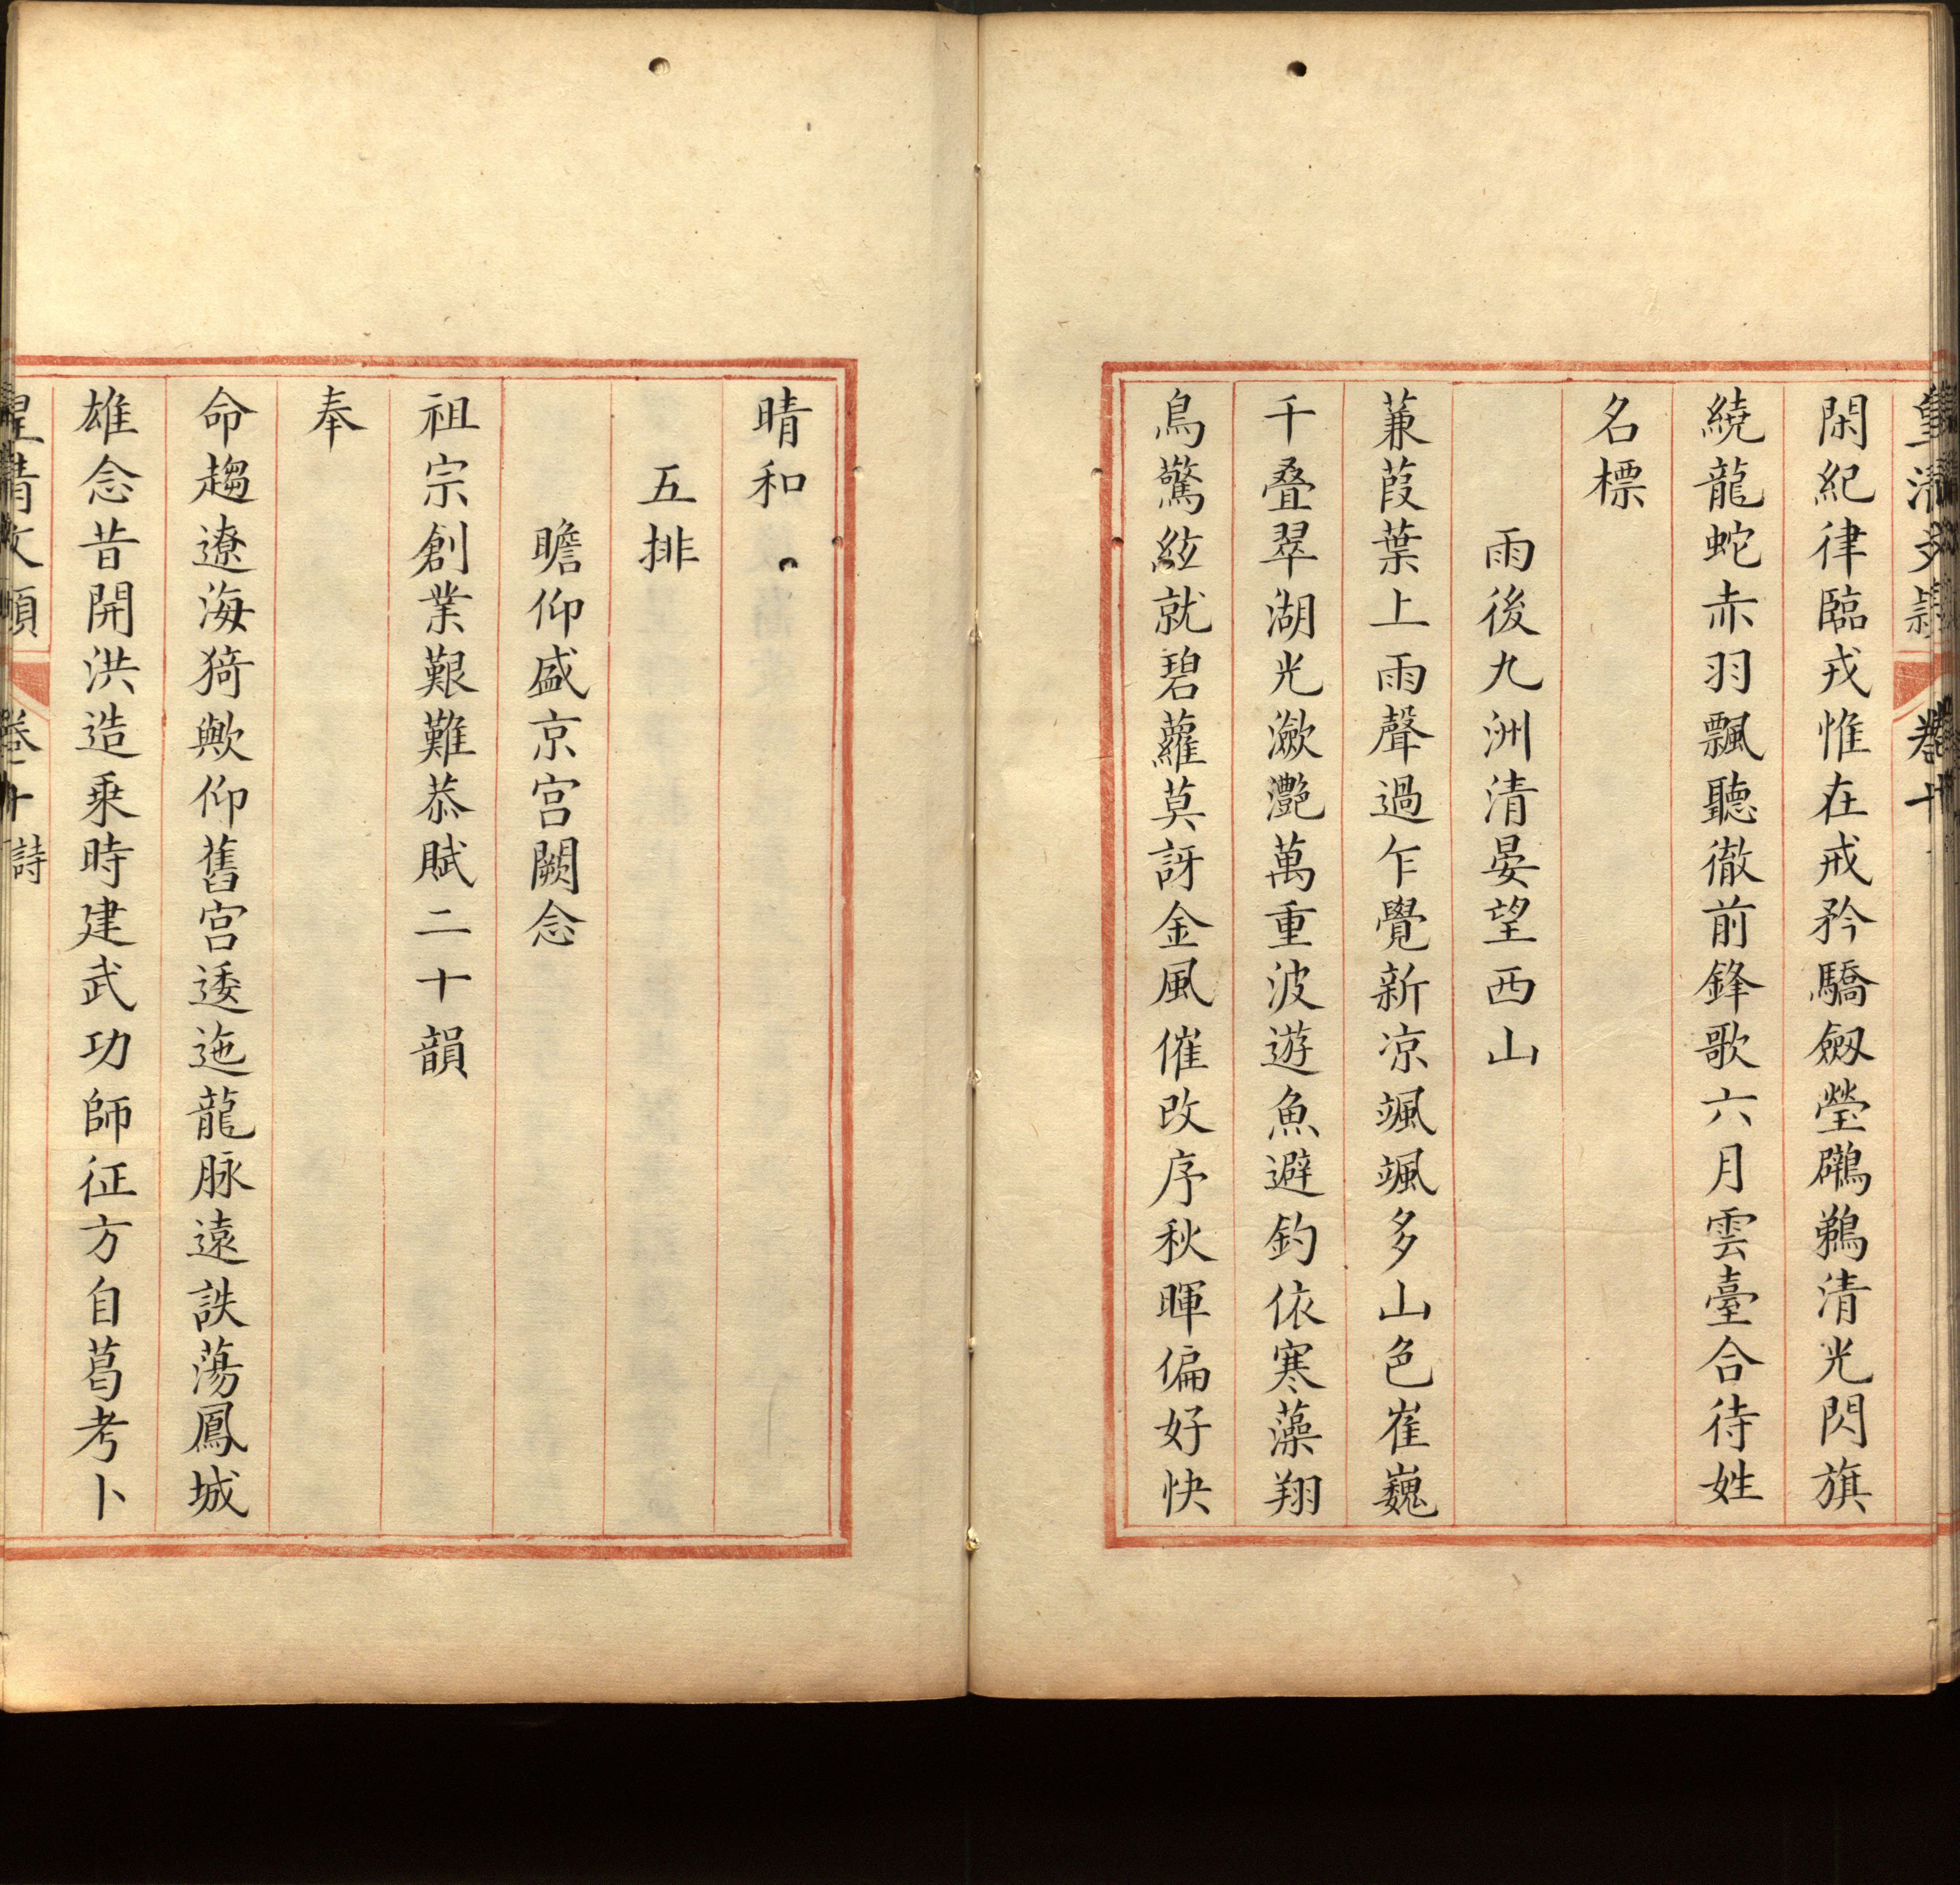 皇清文穎 卷十
閑紀律臨戎惟在戒矜驕劔瑩鸊鵜清光閃旗
繞龍蛇赤羽飄聽徹前鋒歌六月雲臺合待姓
名標
雨後九洲清晏望西山
蒹葭葉上雨聲過乍覺新凉颯颯多山色崔巍
千叠翠湖光瀲灧萬重波遊魚避釣依寒藻翔
鳥驚絃就碧蘿莫訝金風催改序秋暉偏好快
晴和
五排
瞻仰盛京宮闕念
祖宗創業艱難恭賦二十韻
奉
命趨遼海猗歟仰舊宮逶迤龍脉遠詄蕩鳳城
雄念昔開洪造乘時建武功師征方自葛考卜
皇清文穎 卷十 詩